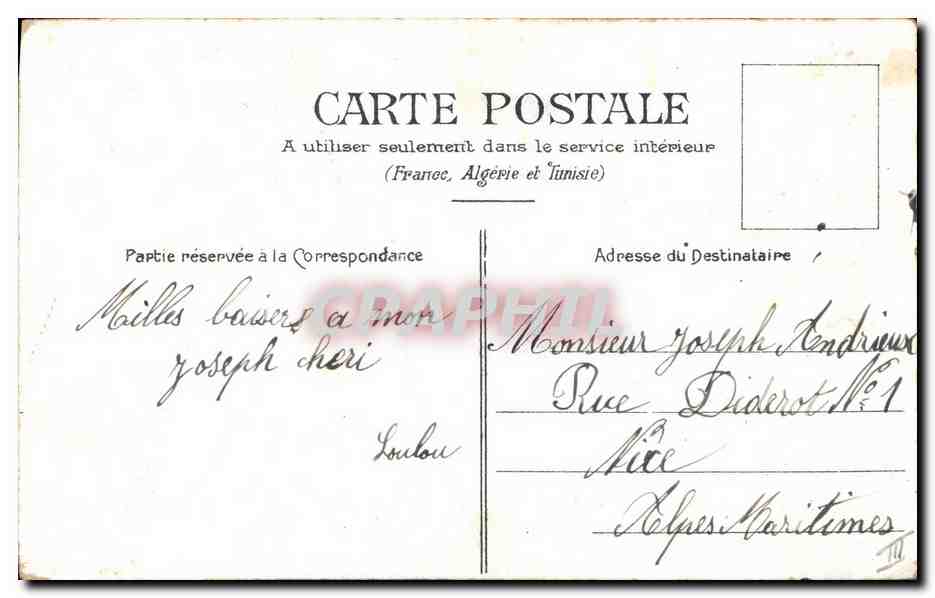 CARTE POSTALE
A utiliser seulement dans le service intérieur
(France, Algérie et Tunisie)
Partie réservée à la Correspondance
Milles baisers a mon
Joseph cheri
Loulou
Adresse du Destinataire
Monsieur Joseph Andrieux
Rue Diderot No 1
Nice
Alpes Maritimes
III
CRAPHIL